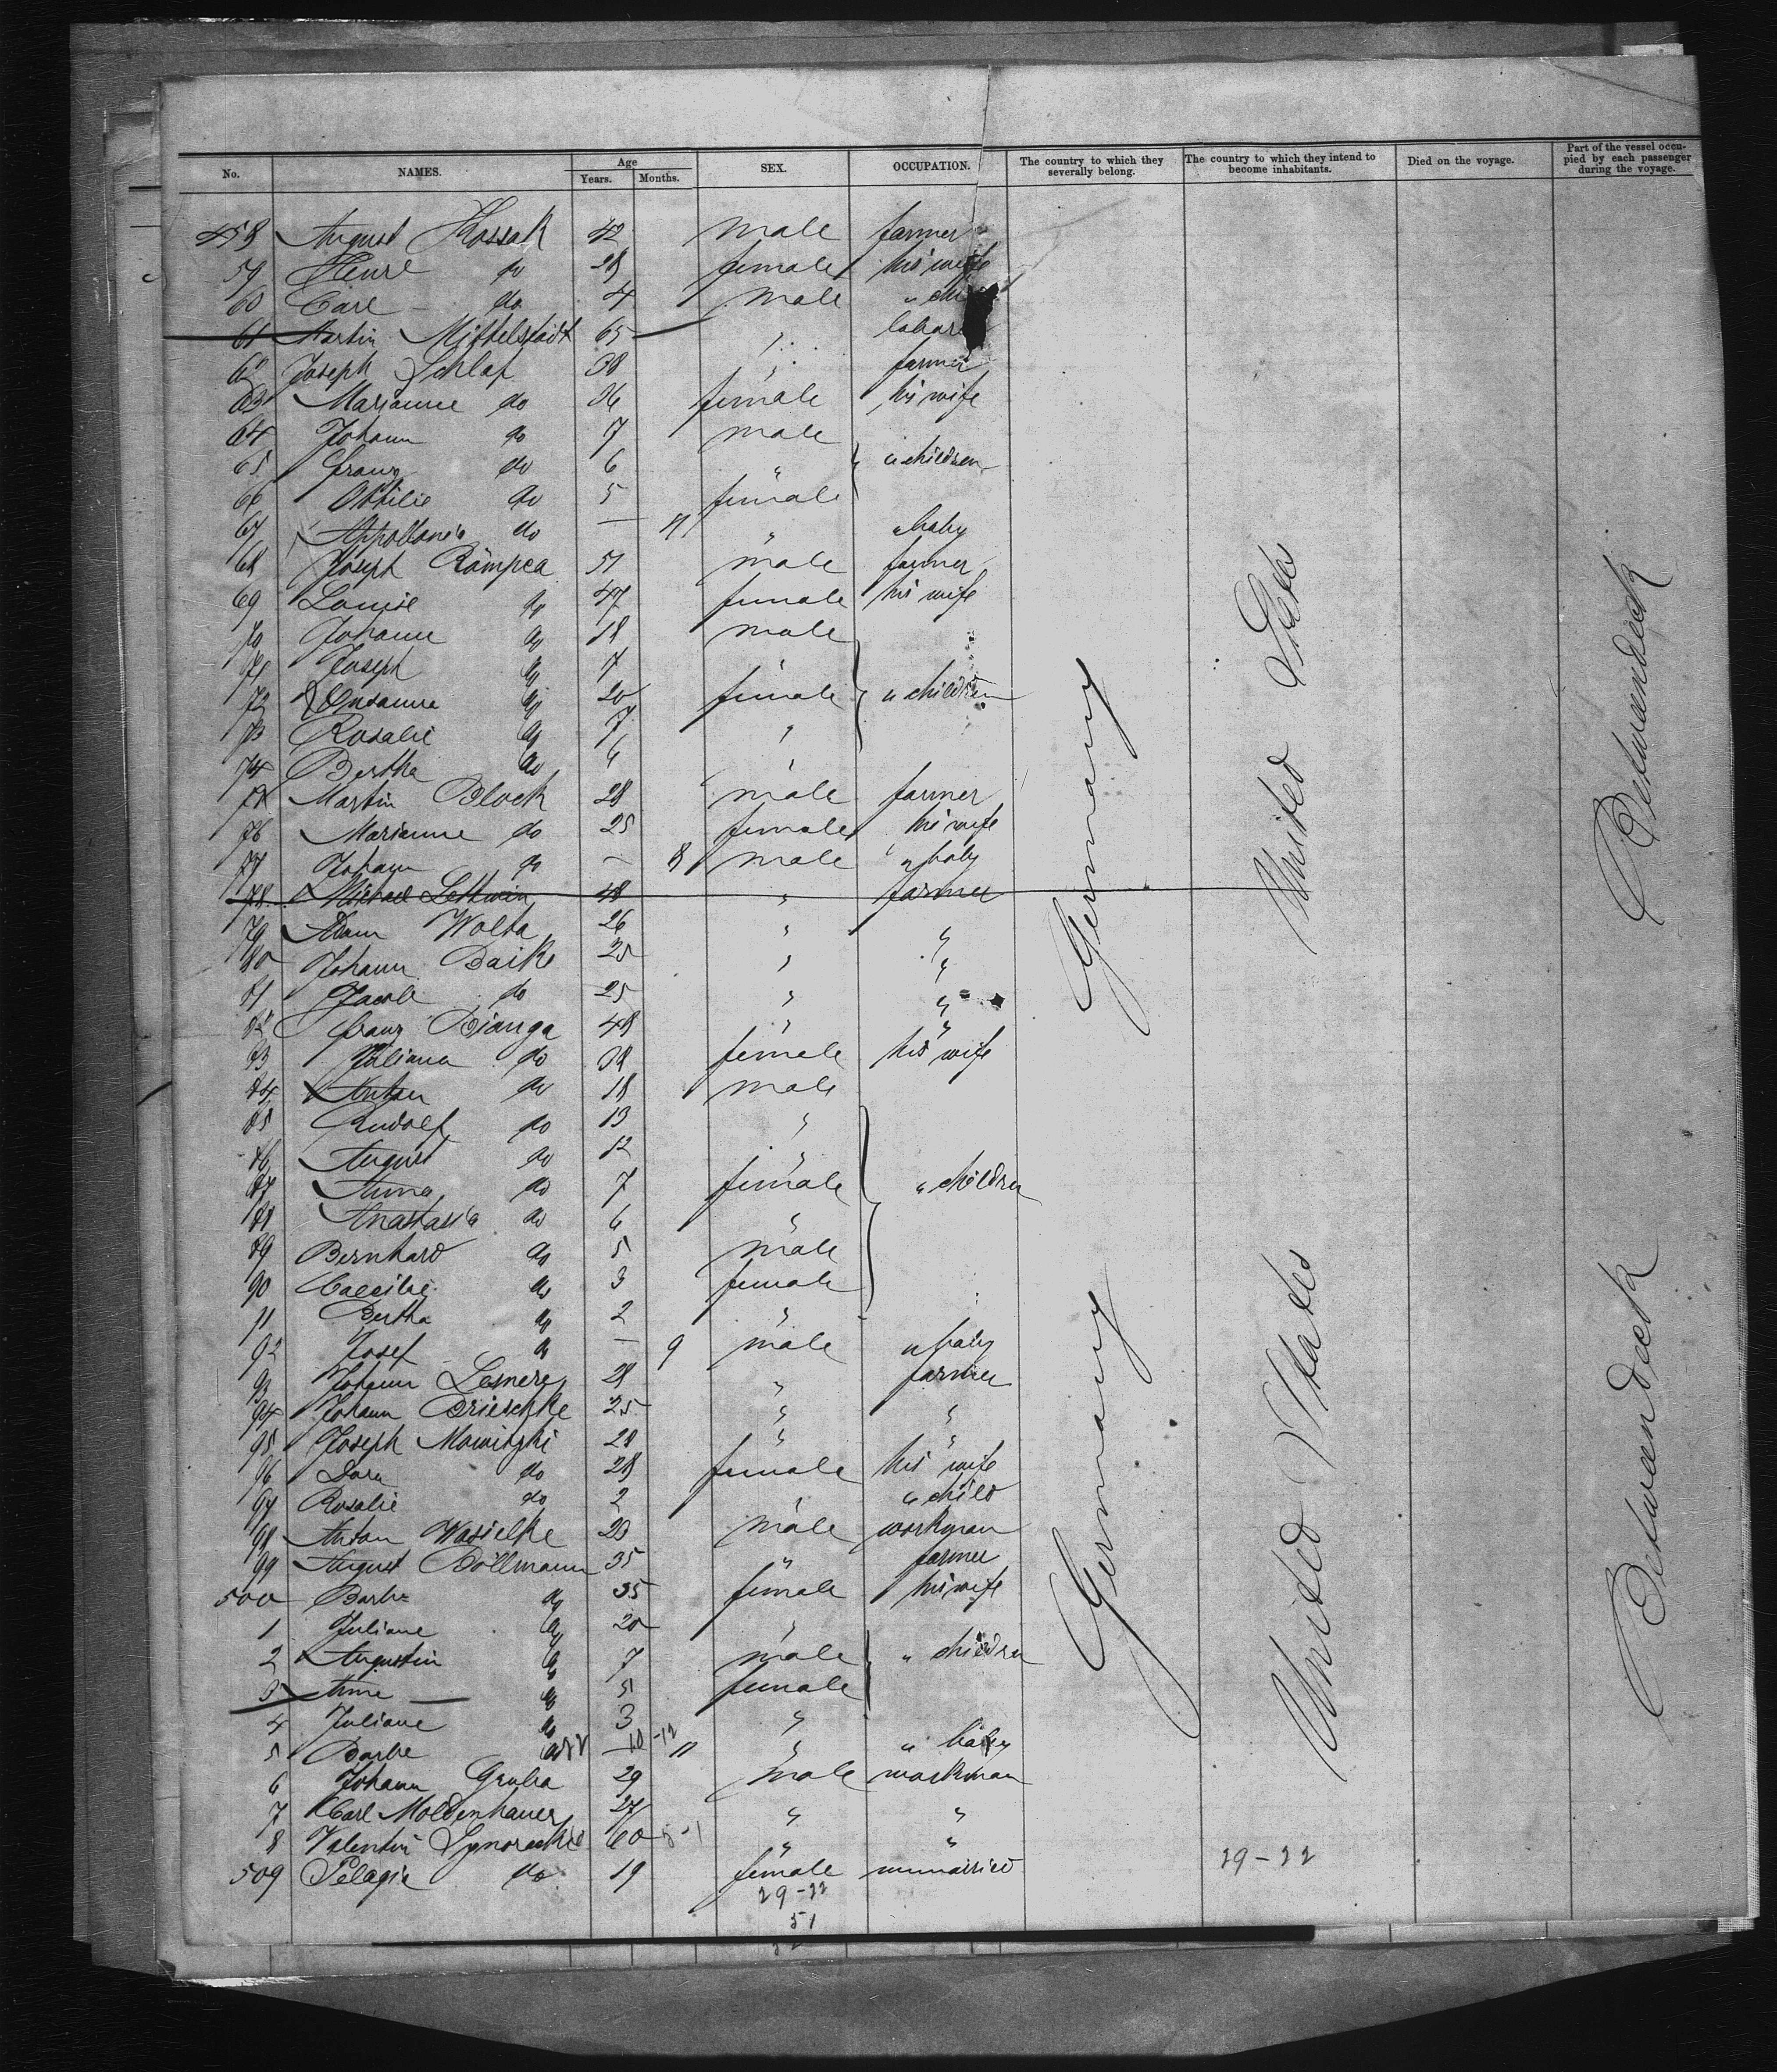 No. NAMES. Age Years. Months. SEX. OCCUPATION. The country to which they severally belong. The country to which they intend to become inhabitants. Died on the voyage. Part of the vessel occupied by each passenger during the voyage.
458 August Kossak 42 male farmer
59 do 28 female his wife
60 Carl do 4 male " child
61 Martin Mittelstädt 65 "
62 Joseph Schlaf 38 " farmer
63 Marianne do 36 female his wife
64 Johann do 7 male
65 Franz do 6 " " children
66 Ottilie do 5 female
67 Appollonia do — 11 " " baby
68 Joseph 51 male farmer
69 Louise do 47 female his wife
70 Johann do 18 male
71 Joseph do 7 "
72 Susanna do 20 female " children
73 Rosalie do 7 "
74 Bertha do 6 "
75 Martin Block 28 male farmer
76 Marianne do 25 female his wife
77 Johann do — 8 male " baby
78 Michael 48 " farmer
79 Adam Wolta 26 " "
80 Johann 25 " "
81 Jacob do 25 " "
82 Franz 48 " "
83 Juliana do 38 female his wife
84 Anton do 18 male
85 Rudolf do 13 "
86 August do 12 "
87 Anna do 7 female " children
88 Anastasia do 6 "
89 Bernhard do 5 male
90 Caecilie do 3 female
91 Bertha do 2 "
92 Josef do — 9 male " baby
93 Johann 28 " farmer
94 Johann Brieschke 25 " "
95 Joseph 28 " "
96 do 28 female his wife
97 Rosalie do 2 " " child
98 Anton Wasielke 23 male workman
99 August Böllmann 35 " farmer
500 do 35 female his wife
1 Juliane do 20 "
2 Augustin do 7 male " children
3 do 5 female
4 Juliane do 3 "
5 do — 11 " " baby
6 Johann Gruba 29 male workman
7 Carl Moldenhauer 27 " "
8 Valentin 60 " "
509 Pelagie do 19 female unmarried
29-22
51
Germany
Germany
United States
United States
29-22
Betweendeck
Betweendeck